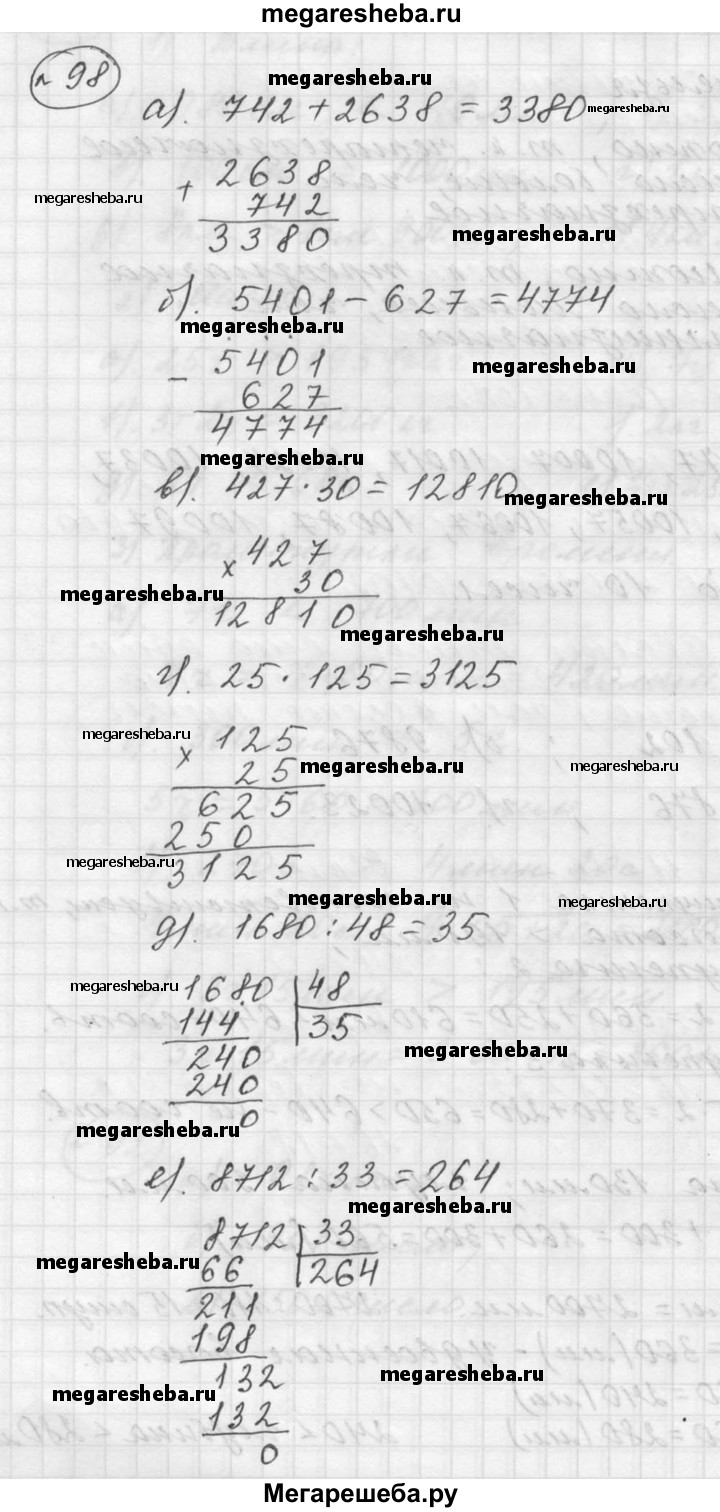 megaresheba.ru
№ 98
megaresheba.ru
а). 742 + 2638 = 3380 megaresheba.ru
+ 2638
megaresheba.ru 742
3380 megaresheba.ru
б). 5401 - 627 = 4774
megaresheba.ru
- 5401 megaresheba.ru
627
4774
megaresheba.ru
в). 427 · 30 = 12810 megaresheba.ru
× 427
megaresheba.ru 30
12810
megaresheba.ru
г). 25 · 125 = 3125
megaresheba.ru × 125
25 megaresheba.ru megaresheba.ru
625
250
megaresheba.ru 3125
megaresheba.ru megaresheba.ru
д). 1680 : 48 = 35
megaresheba.ru 1680 48
144 35
240 megaresheba.ru
240
0
megaresheba.ru
е). 8712 : 33 = 264
megaresheba.ru
8712 33
megaresheba.ru 66 264
211
198
132 megaresheba.ru
megaresheba.ru 132
0
Мегарешеба.ру